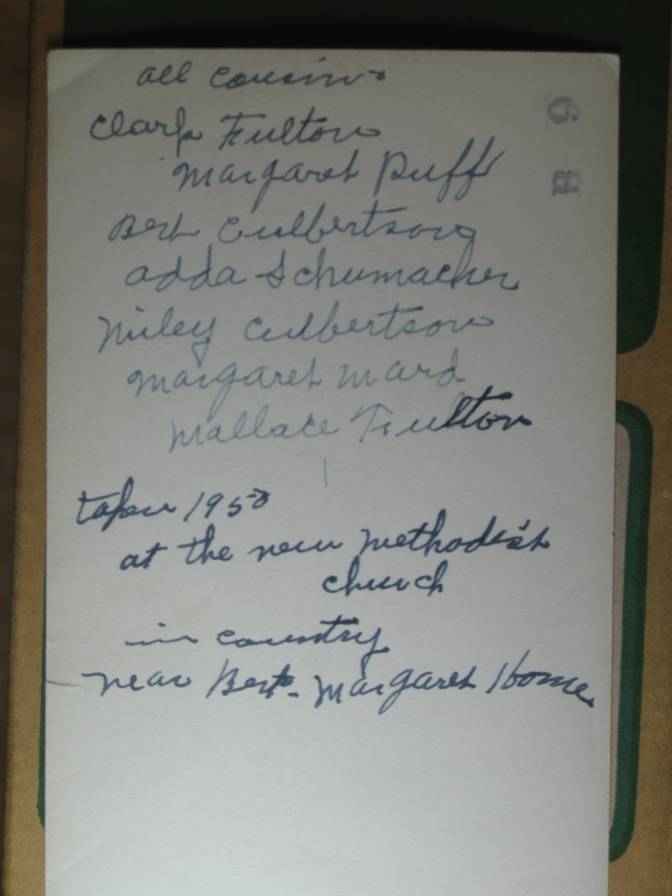 all cousins
Clark Fulton
Margaret Puff
Bert Culbertson
Adda Schumacher
Niley Culbertson
Margaret Ward
Wallace Fulton
taken 1950
at the new Methodist
church
in country
near Bert - Margaret Home